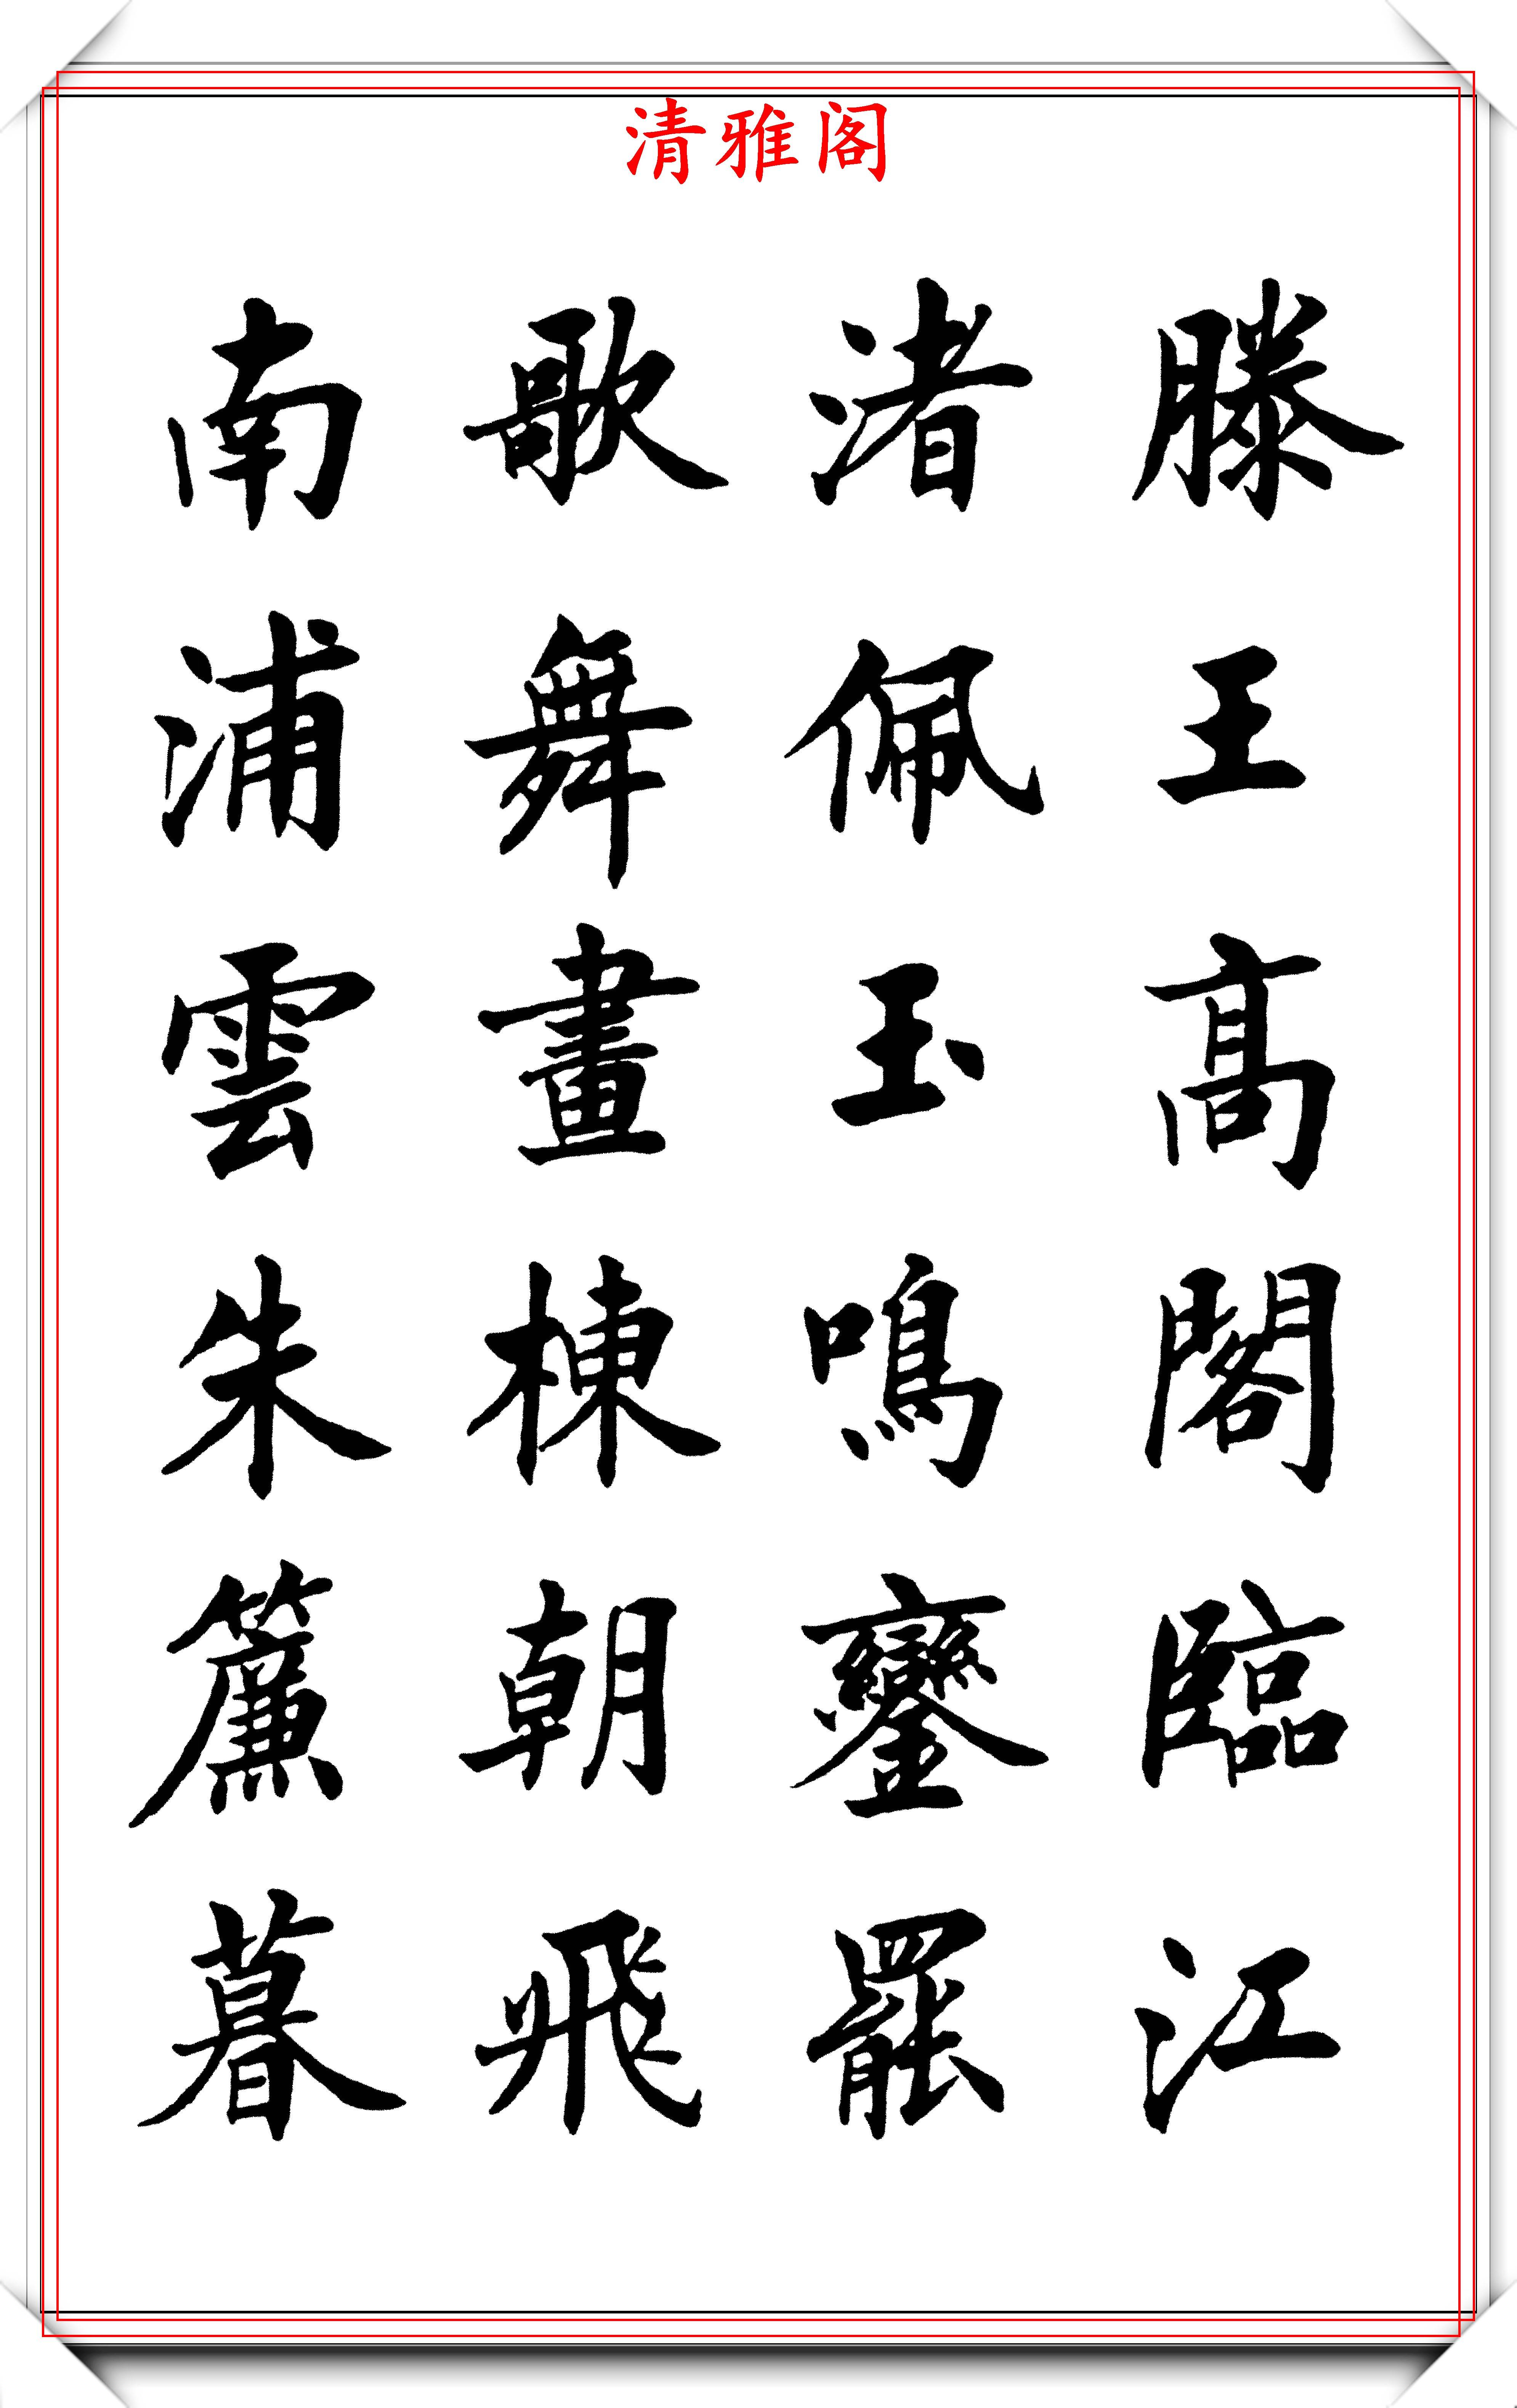 清雅阁
滕王高閣臨江
渚佩玉鳴鑾罷
歌舞畫棟朝飛
南浦雲朱簾暮